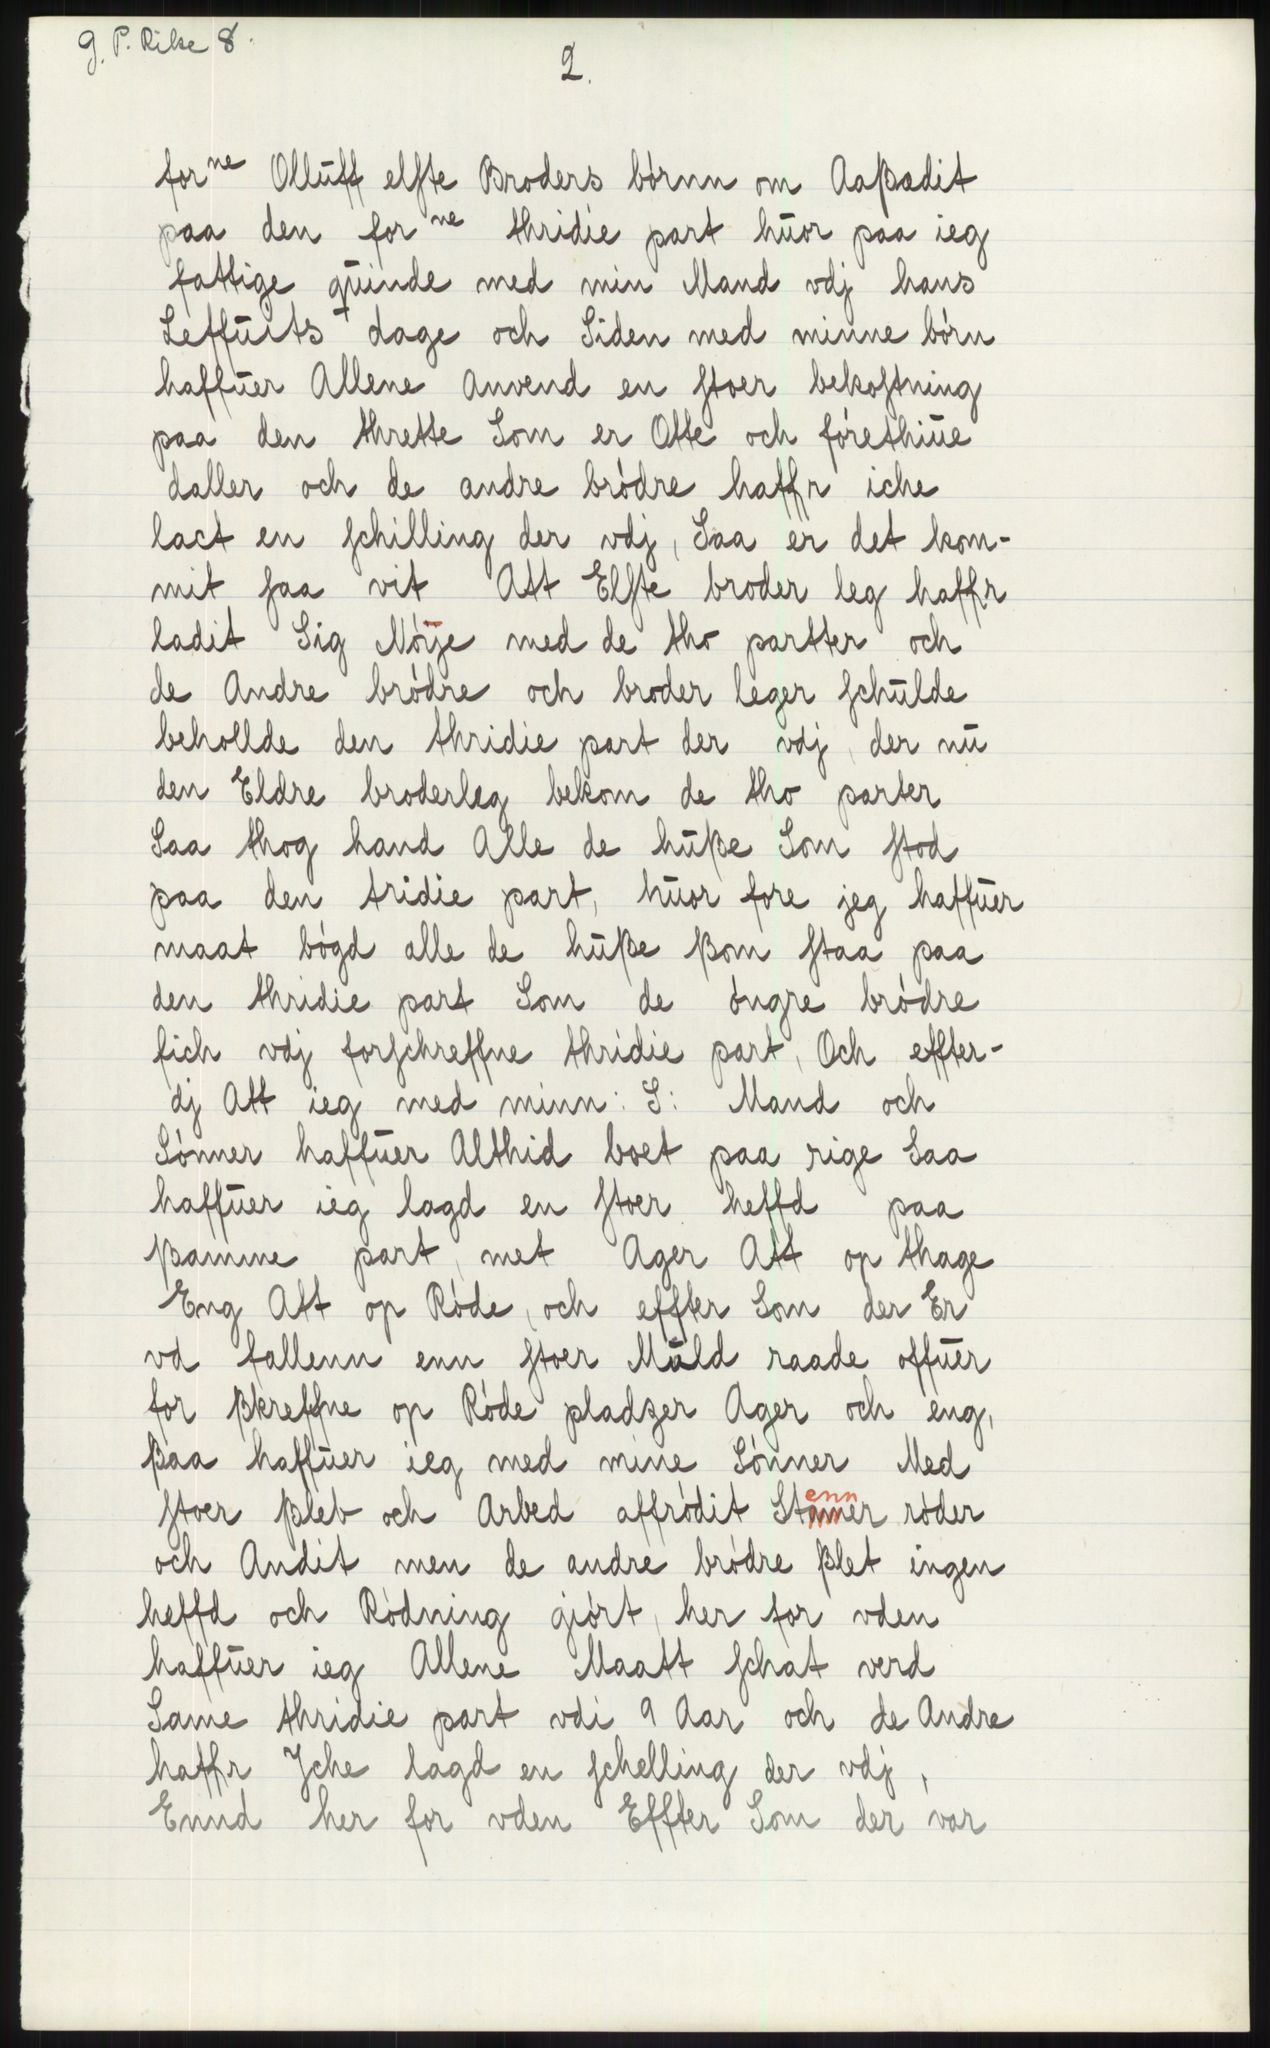 g. P. Rike 8.
2.
forne Olluff elfte Broders børnn om Aaßædit
paa den forne thridie part huor paa ieg
fattige quinde med min Mand vdj hans
Leffuits dage och Siden med minne børn
haffuer Allene anvend en stoer bekostning
paa den thrette Som er Otte och førethiue
daller och de andre brødre haffr iche
lact en schilling der vdj, Saa er det kom-
mit saa vit Att Elste broder leg haffr
ladit Sig Nøije med de tho partter och
de Andre brødre och broder leger schulde
behollde den thridie part der vdj, der nu
den Eldre broderleg bekom de tho parter
Saa thog hand Alle de huße Som stod
paa den tridie part, huor fore jeg haffuer
maat bøgd alle de huße ßom staa paa
den thridie part Som de øngre brødre
fich vdj forschreffne thridie part, Och effter-
dj Att ieg med minn: S: Mand och
Sønner haffuer Althid boet paa rige Saa
haffuer ieg lagd en stoer heffd paa
ßamme part, met Ager Att op thage
Eng Att op Røde, och effter Som der Er
vd fallenn enn stoer Muld raade offuer
for ßkreffne op Røde pladzer Ager och eng,
ßaa haffuer ieg med mine Sønner Med
stoer ßleb och Arbed affrødit Stenner røder
och Andit men de andre brødre ßlet ingen
heffd och Rødning giørt, her for vden
haffuer ieg Allene Maatt schat verd
Same thridie part vdi 9 Aar och de Andre
haffr Jche lagd en schelling der vdj,
Ennd her for vden Effter Som der var